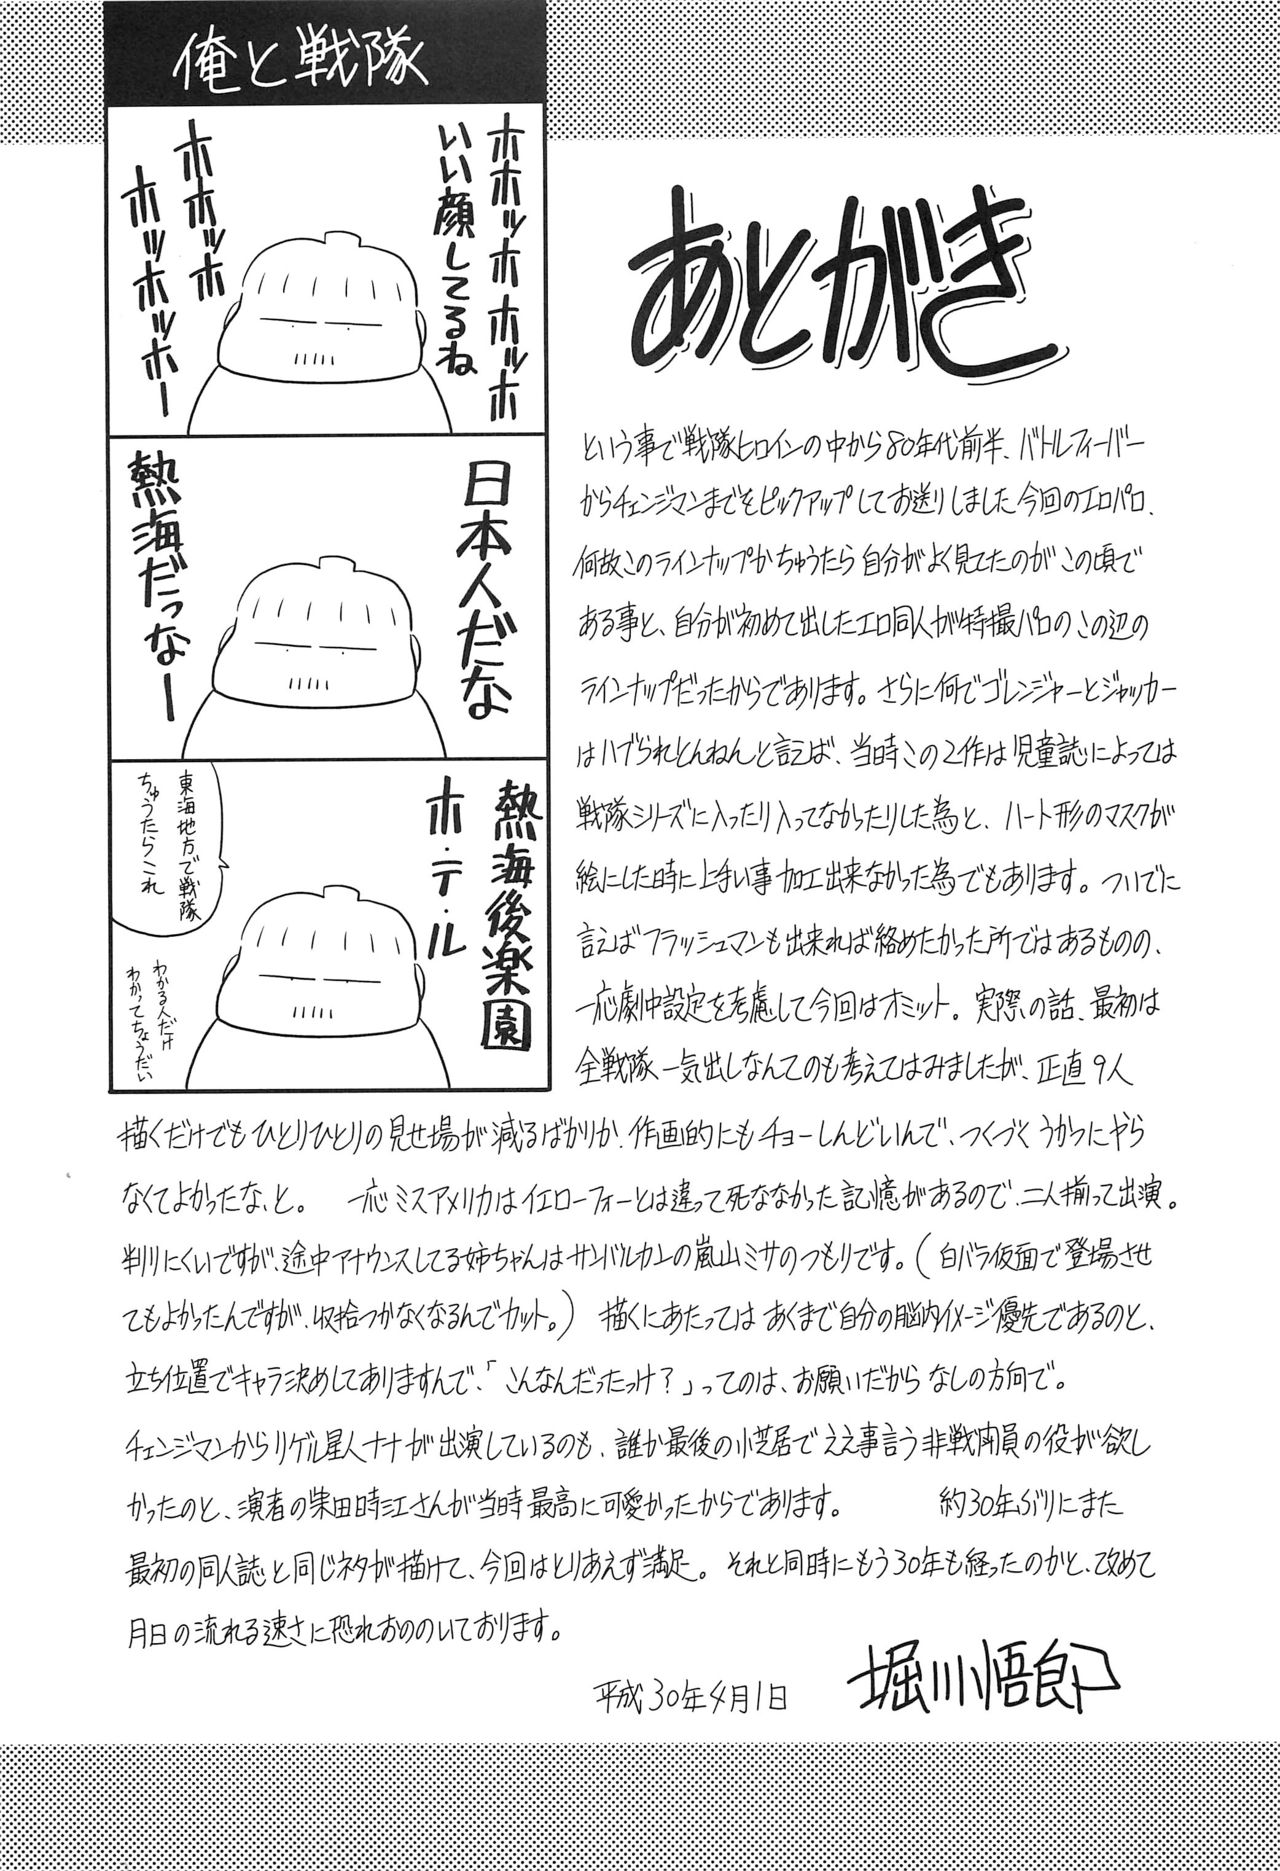 俺と戦隊
ホホッホホホッホ
いい顔してるね
ホホッホ
ホッホッホー
日本人だな
熱海だっなー
熱海後楽園
ホ・テ・ル
東海地方で戦隊
ちゅうたらこれ
わかる人だけ
わかってちょうだい
あとがき
という事で戦隊ヒロインの中から80年代前半、バトルフィーバー
からチェンジマンまでをピックアップしてお送りしました今回のエロパロ、
何故このラインナップかちゅうたら自分がよく見てたのがこの頃で
ある事と、自分が初めて出したエロ同人が特撮パロのこの辺の
ラインナップだったからであります。さらに何でゴレンジャーとジャッカー
はハブられとんねんと言えば、当時この2作は児童誌によっては
戦隊シリーズに入ったり入ってなかったりした為と、ハート形のマスクが
絵にした時に上手い事加工出来なかった為でもあります。ついでに
言えばフラッシュマンも出来れば絡めたかった所ではあるものの、
一応劇中設定を考慮して今回はオミット。実際の話、最初は
全戦隊一気出しなんてのも考えてはみましたが、正直9人
描くだけでもひとりひとりの見せ場が減るばかりか、作画的にもチョーしんどいんで、つくづくうかつにやら
なくてよかったな、と。一応ミスアメリカはイエローフォーとは違って死ななかった記憶があるので、二人揃って出演。
判りにくいですが、途中アナウンスしてる姉ちゃんはサンバルカンの嵐山ミサのつもりです。(白バラ仮面で登場させ
てもよかったんですが、収拾つかなくなるんでカット。)描くにあたってはあくまで自分の脳内イメージ優先であるのと、
立ち位置でキャラ決めしてありますんで、「こんなんだったっけ?」ってのは、お願いだからなしの方向で。
チェンジマンからリゲル星人ナナが出演しているのも、誰か最後の小芝居でええ事言う非戦闘員の役が欲し
かったのと、演者の柴田時江さんが当時最高に可愛かったからであります。約30年ぶりにまた
最初の同人誌と同じネタが描けて、今回はとりあえず満足。それと同時にもう30年も経ったのかと、改めて
月日の流れる速さに恐れおののいております。
平成30年4月1日
堀川悟郎